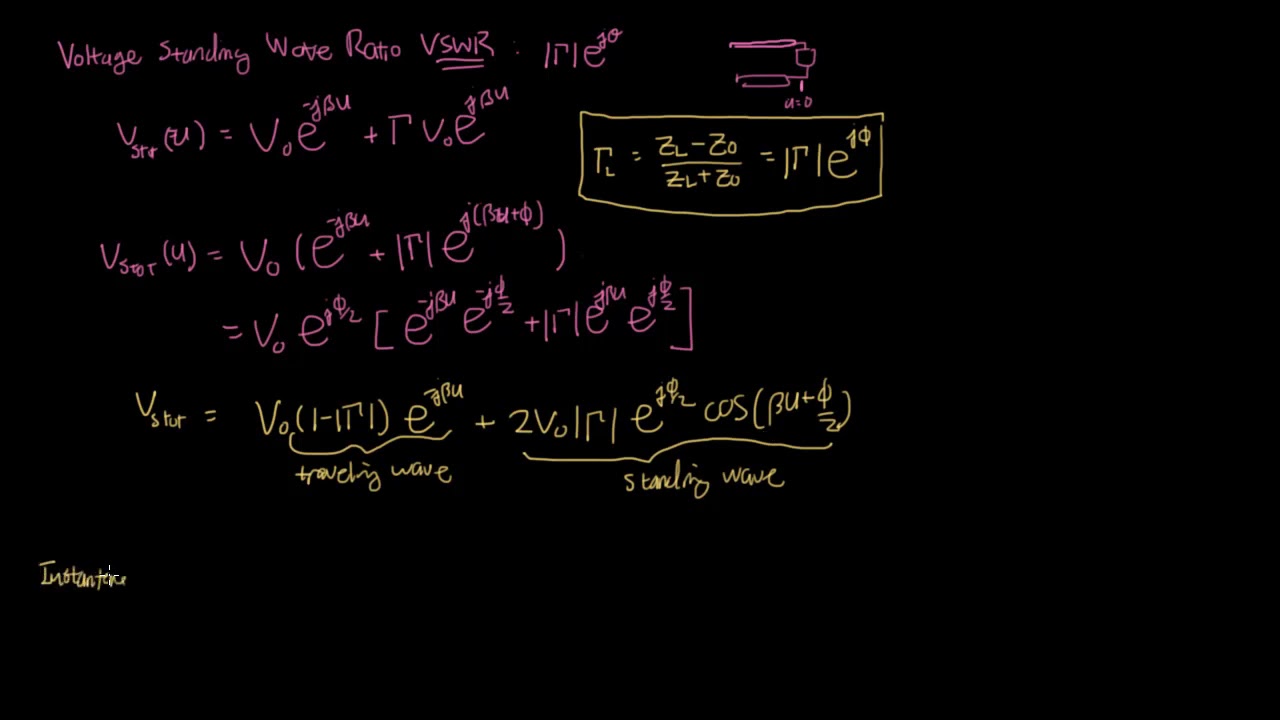 Voltage Standing Wave Ratio VSWR : |Γ|e^{jθ}
u=0
V_{stot}(u) = V_0 e^{-jβu} + Γ V_0 e^{jβu}
Γ_L = \frac{Z_L - Z_0}{Z_L + Z_0} = |Γ| e^{jϕ}
V_{stot}(u) = V_0 (e^{-jβu} + |Γ| e^{j(βu+ϕ)})
= V_0 e^{jϕ/2} [e^{-jβu} e^{-jϕ/2} + |Γ| e^{jβu} e^{jϕ/2}]
V_{stot} = V_0 (1-|Γ|) e^{-jβu} + 2V_0|Γ| e^{jϕ/2} cos(βu+\frac{ϕ}{2})
traveling wave
standing wave